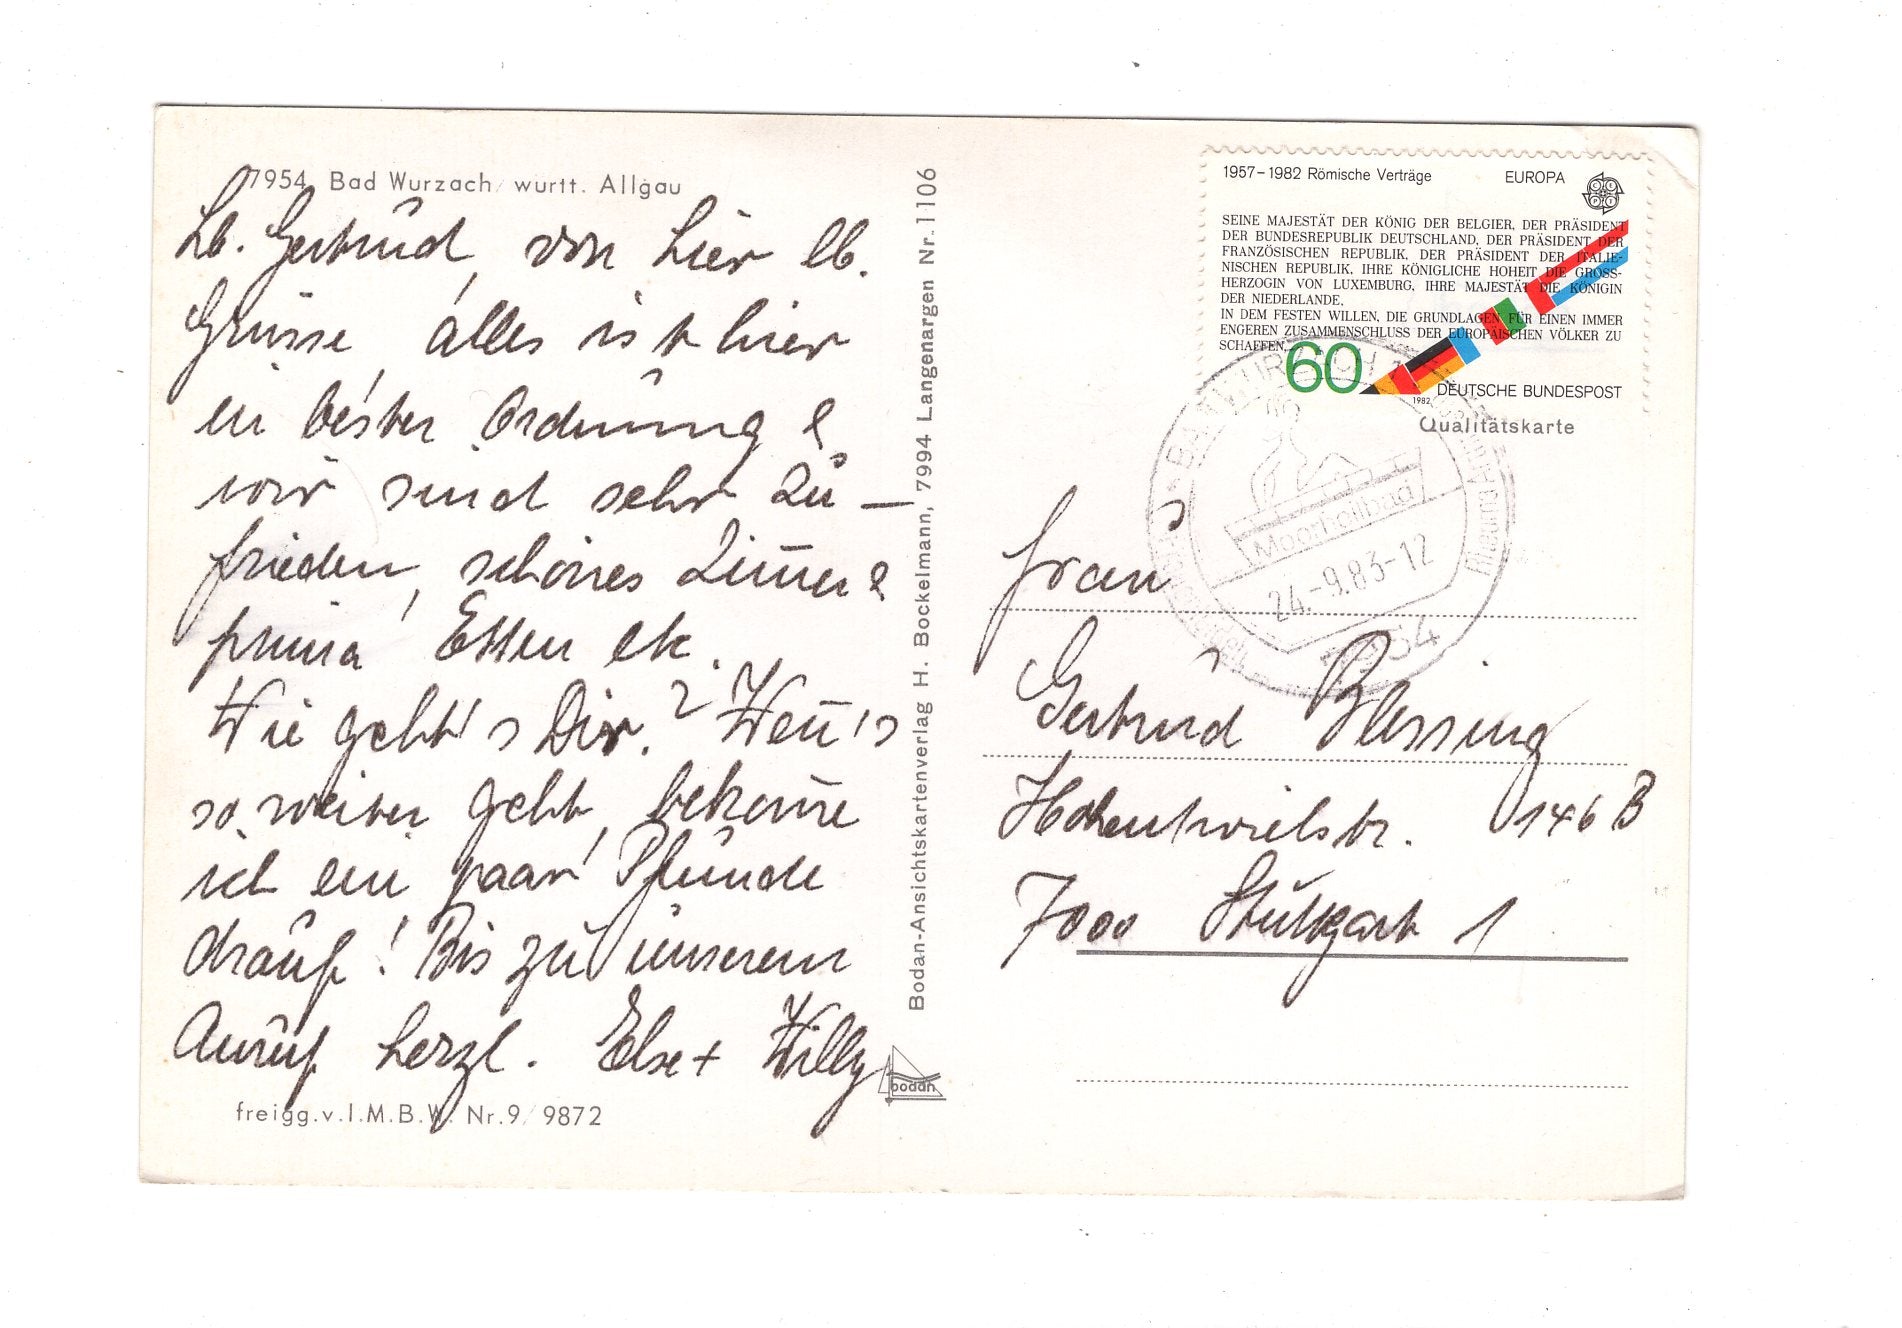 7954 Bad Wurzach/württ. Allgäu
Lb. Gertrud, von hier lb.
Grüsse, alles ist hier
in bester Ordnung &
wir sind sehr zu-
frieden, schönes Zim̅er &
prima Essen etc.
Wie geht's Dir? Wen̅'s
so weiter geht, bekom̅e
ich ein paar Pfunde
drauf! Bis zu unserem
Anruf herzl. Else + Willy
freigg.v.I.M.B.W. Nr.9/9872
Bodan-Ansichtskartenverlag H. Bockelmann, 7994 Langenargen Nr.1106
bodan
1957–1982 Römische Verträge EUROPA
CEPT
SEINE MAJESTÄT DER KÖNIG DER BELGIER, DER PRÄSIDENT
DER BUNDESREPUBLIK DEUTSCHLAND, DER PRÄSIDENT DER
FRANZÖSISCHEN REPUBLIK, DER PRÄSIDENT DER ITALIE-
NISCHEN REPUBLIK, IHRE KÖNIGLICHE HOHEIT DIE GROSS-
HERZOGIN VON LUXEMBURG, IHRE MAJESTÄT DIE KÖNIGIN
DER NIEDERLANDE,
IN DEM FESTEN WILLEN, DIE GRUNDLAGEN FÜR EINEN IMMER
ENGEREN ZUSAMMENSCHLUSS DER EUROPÄISCHEN VÖLKER ZU
SCHAFFEN,
60
1982
DEUTSCHE BUNDESPOST
Qualitätskarte
BAD WURZACH 1
Moorheilbad
24.-9.83-12
7954
Frau
Gertrud Blessing
Hohentwielstr. 146 B
7000 Stuttgart 1